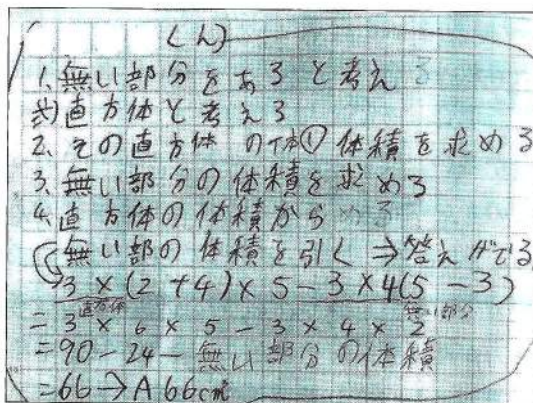 くん
1、無い部分をあると考える
式)直方体と考える
2、その直方体の体① 体積を求める
3、無い部分の体積を求める
4、直方体の体積から める
無い部の体積を引く→答えがでる
3×(2+4)×5-3×4(5-3)
直方体 無い部分
=3×6×5-3×4×2
=90-24-無い部分の体積
=66→A 66cm